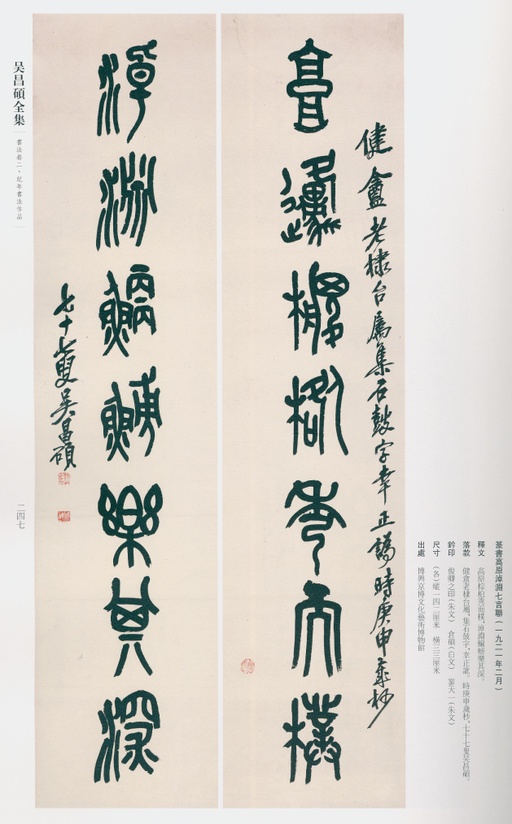 健盦老棣台屬集石鼓字幸正譌時庚申歲杪
高原棕柏秀而樸
淖淵鯿鯆樂其深
七十七叟吳昌碩
篆書高原淖淵七言聯（一九二一年二月）
釋文 高原棕柏秀而樸，淖淵鯿鯆樂其深。
落款 健盦老棣台屬，集石鼓字，幸正譌。時庚申歲杪，七十七叟吳昌碩。
鈐印 俊卿之印（朱文） 倉碩（白文） 天一（朱文）
尺寸 （各）縱一四二厘米 橫三三厘米
出處 博興京博文化藝術博物館
吴昌碩全集
書法卷二・紀年書法作品
二四七